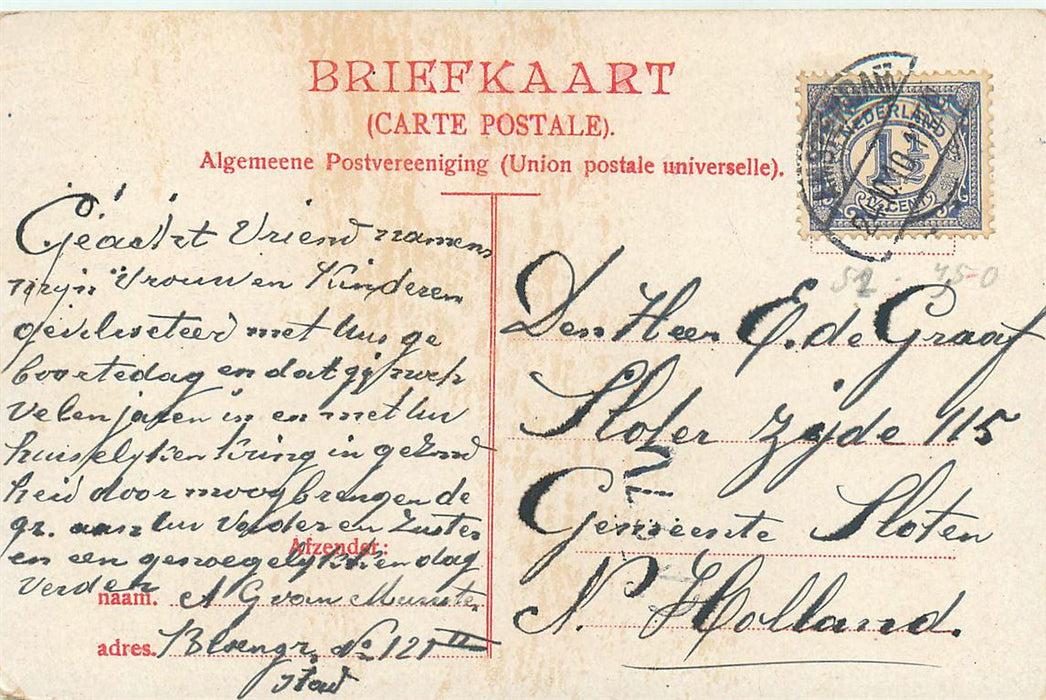 BRIEFKAART
(CARTE POSTALE).
Algemeene Postvereeniging (Union postale universelle).
NEDERLAND
1½
1½ CENT
Geacht Vriend namens
mijn Vrouw en Kinderen
gefeliseteerd met Uw ge
boortedag en dat gij noch
velen jaren in en met Uw
huiselyken kring in gezond
heid door moog brengen de
gr. aan Uw Vader en Zuster
en een genoegelyken dag
verder
Afzender:
naam. A G van Munster
adres. Bloemgr. No 121 II
Stad
52 . 75-0
Den Heer E. de Graaf
Sloter zijde 115
Gemeente Sloten
N. Holland.